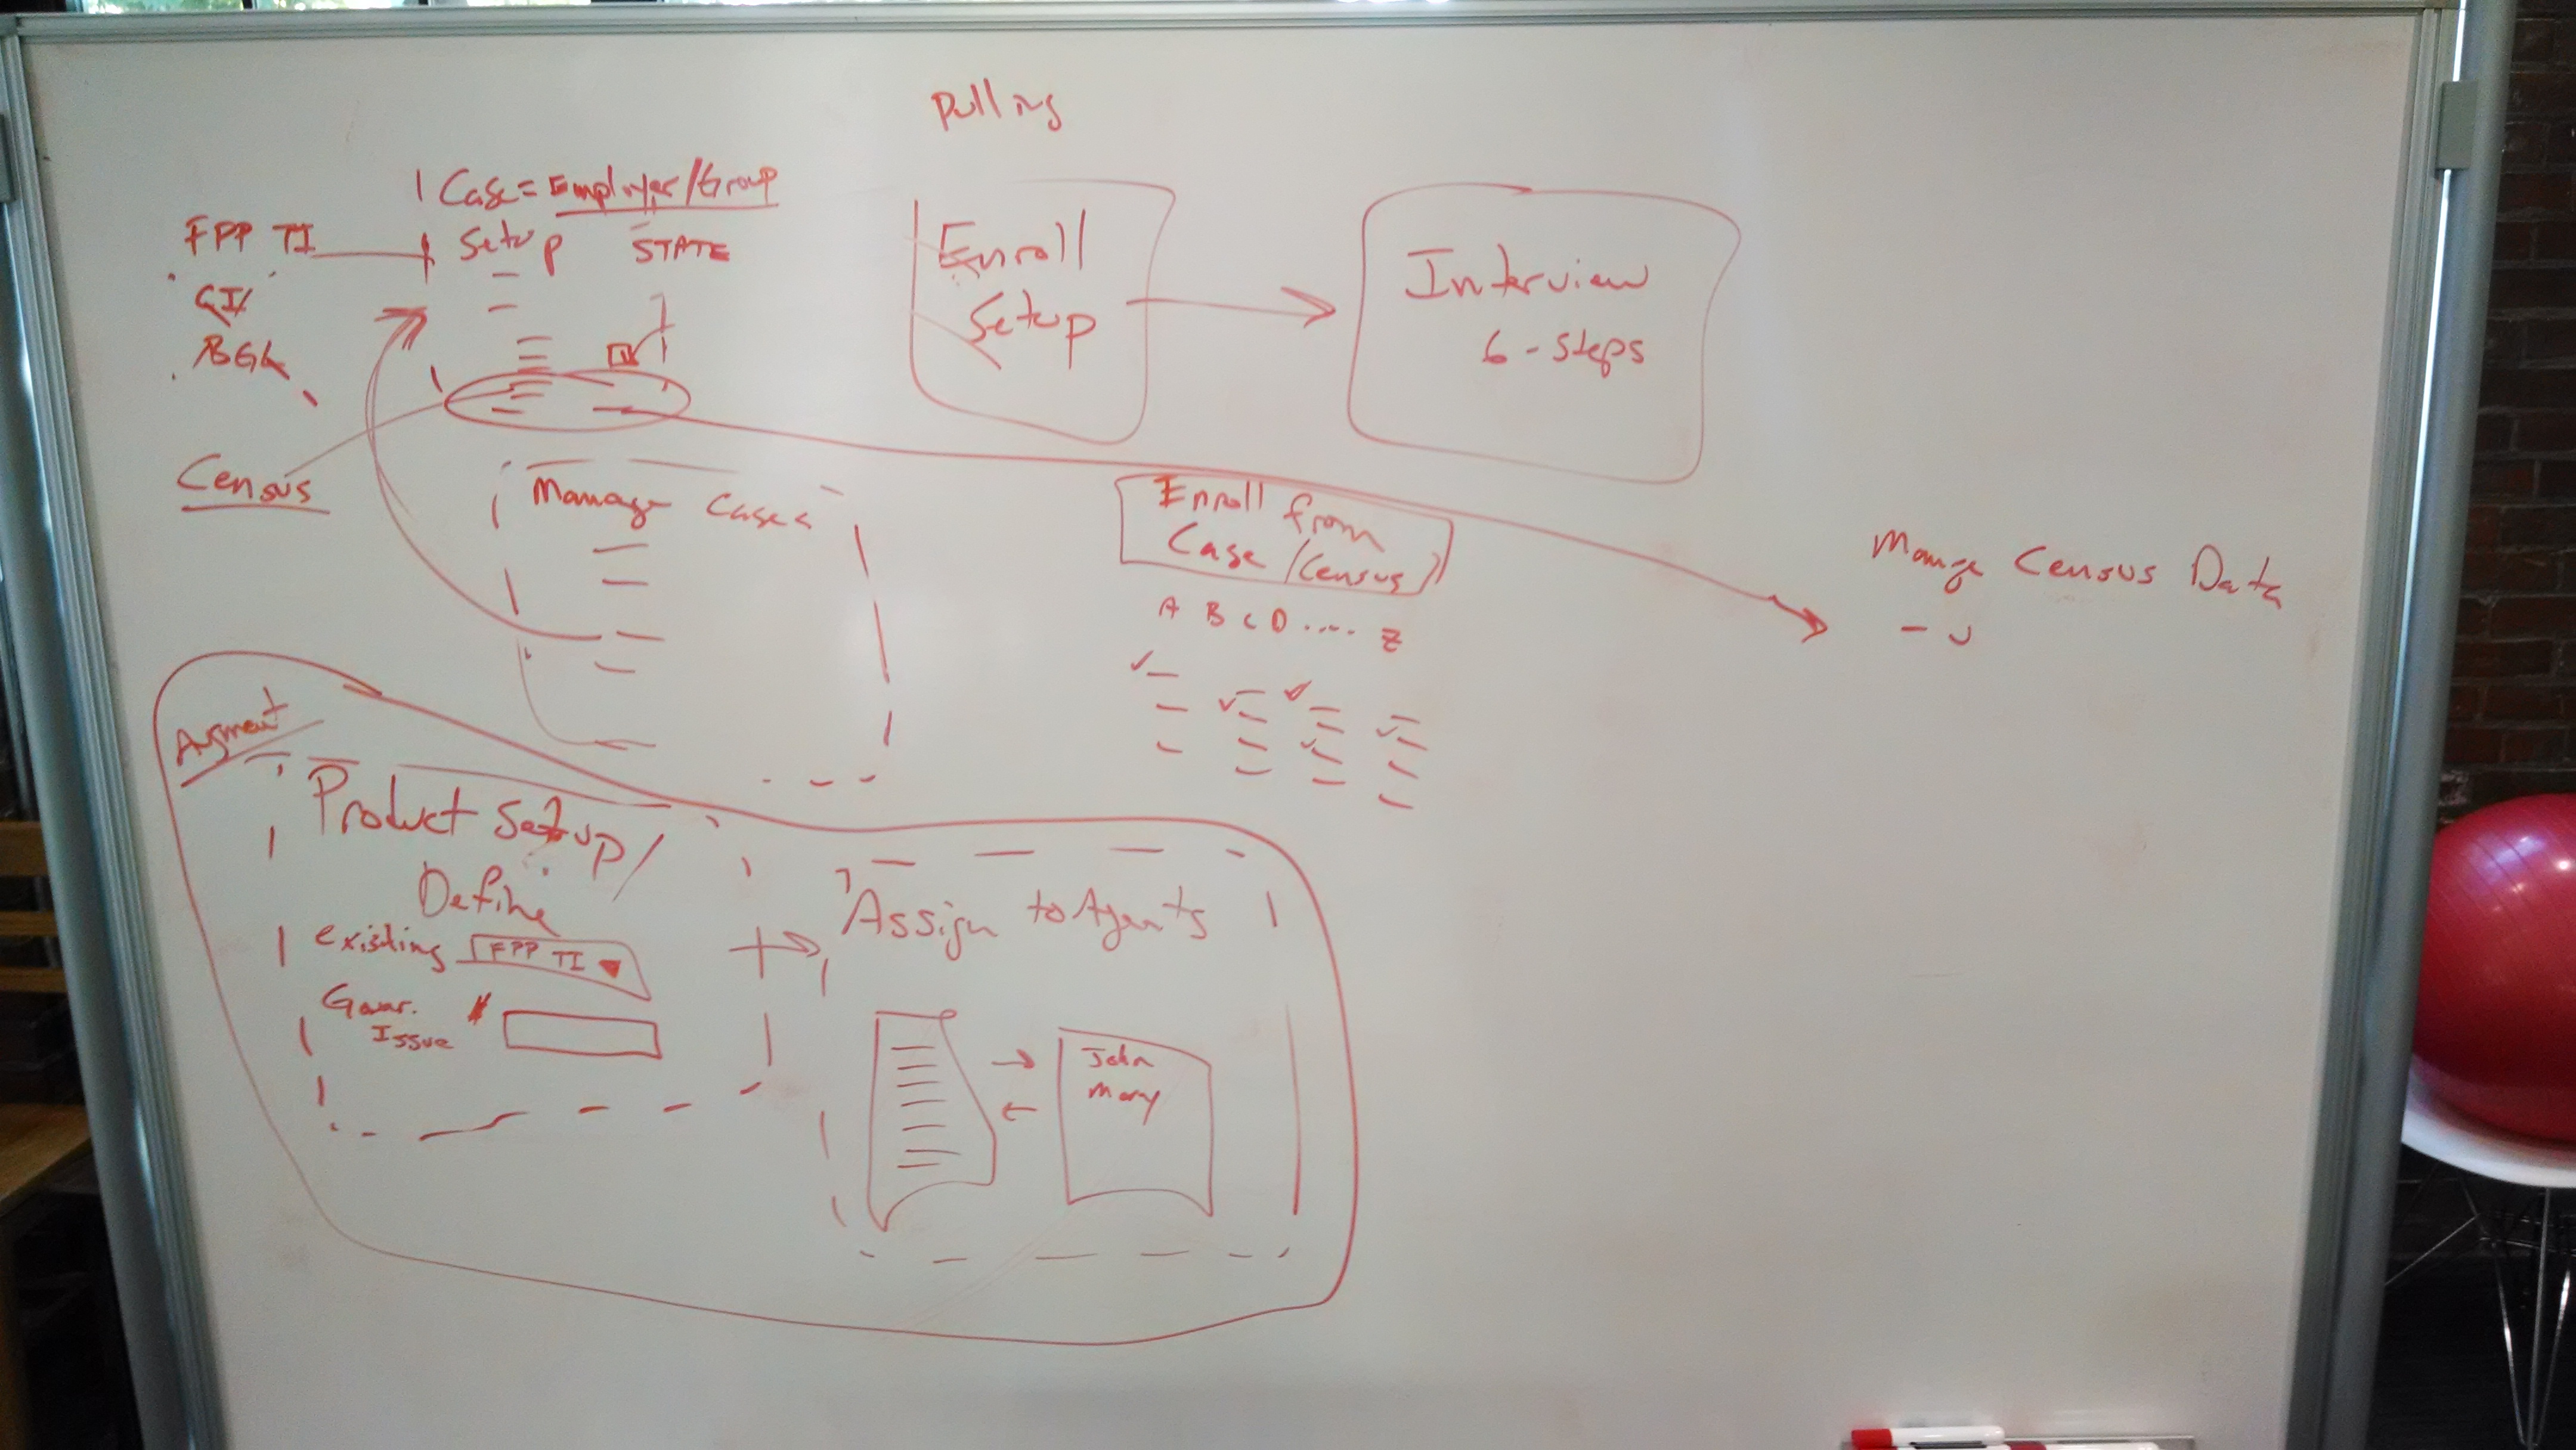 Pulling
1 Case = Employer/Group
Setup STATE
FPP TI
CI
Census
Enroll
Setup
Interview
6 - Steps
Manage Cases
Enroll from
Case /Census
A B C D .... Z
Mange Census Data
Augment
Product Setup/
Define
existing FPP TI
Guar.
Issue
Assign to Agents
John
Mary